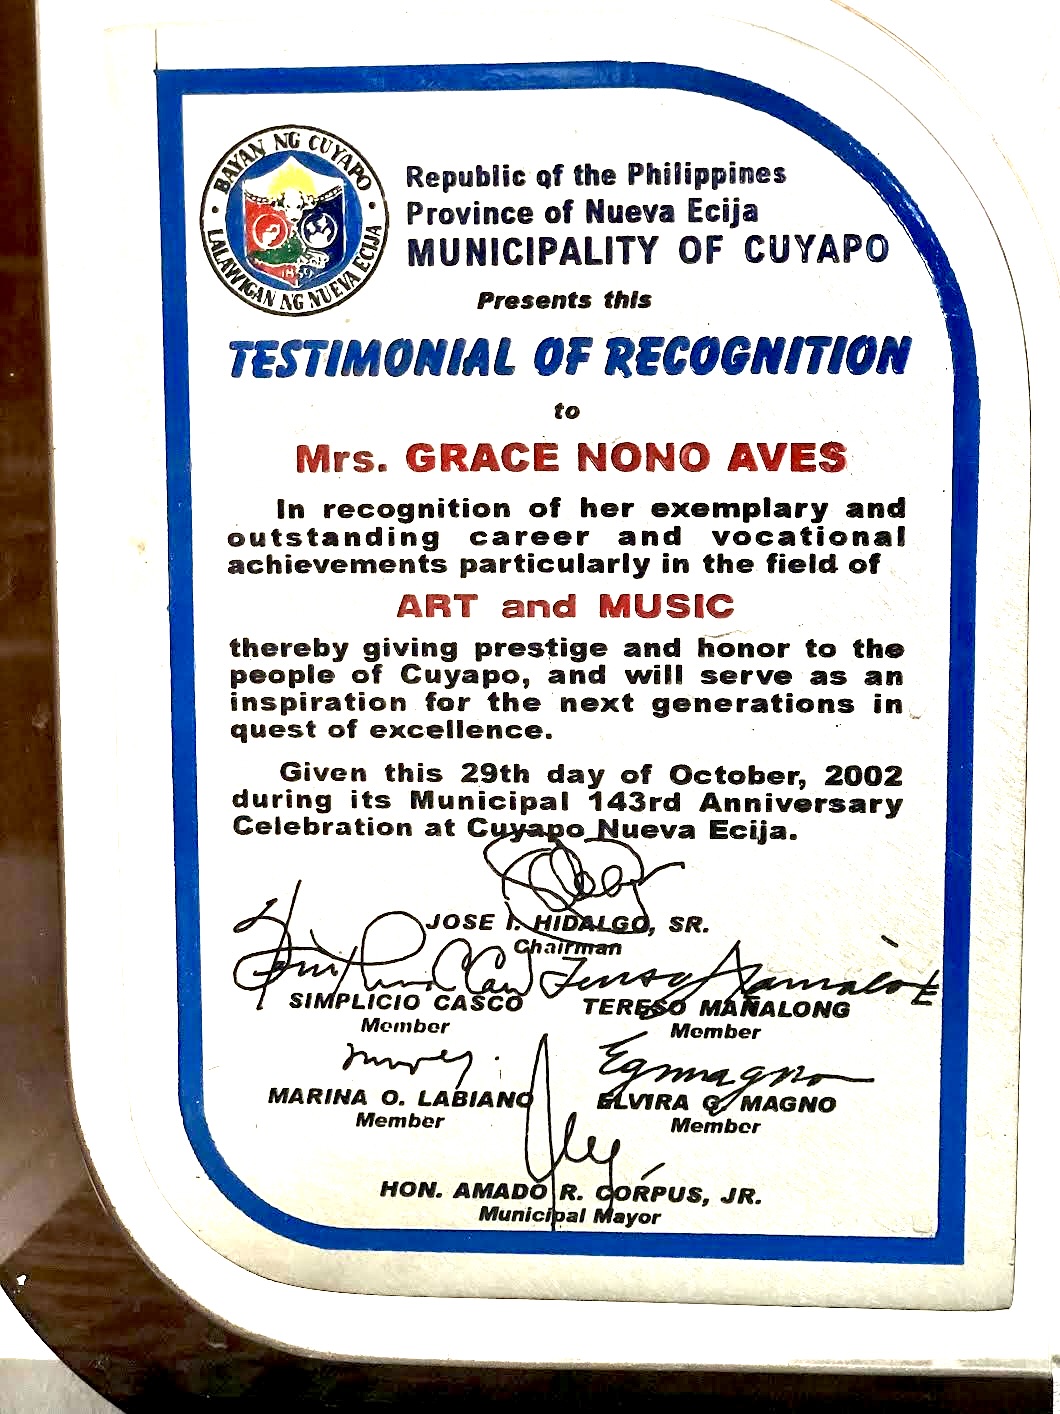 BAYAN NG CUYAPO
LALAWIGAN NG NUEVA ECIJA
1859
Republic of the Philippines
Province of Nueva Ecija
MUNICIPALITY OF CUYAPO
Presents this
TESTIMONIAL OF RECOGNITION
to
Mrs. GRACE NONO AVES
In recognition of her exemplary and
outstanding career and vocational
achievements particularly in the field of
ART and MUSIC
thereby giving prestige and honor to the
people of Cuyapo, and will serve as an
inspiration for the next generations in
quest of excellence.
Given this 29th day of October, 2002
during its Municipal 143rd Anniversary
Celebration at Cuyapo Nueva Ecija.
JOSE I. HIDALGO, SR.
Chairman
SIMPLICIO CASCO
Member
TERESO MAÑALONG
Member
MARINA O. LABIANO
Member
Egmagno
ELVIRA G. MAGNO
Member
HON. AMADO R. CORPUS, JR.
Municipal Mayor